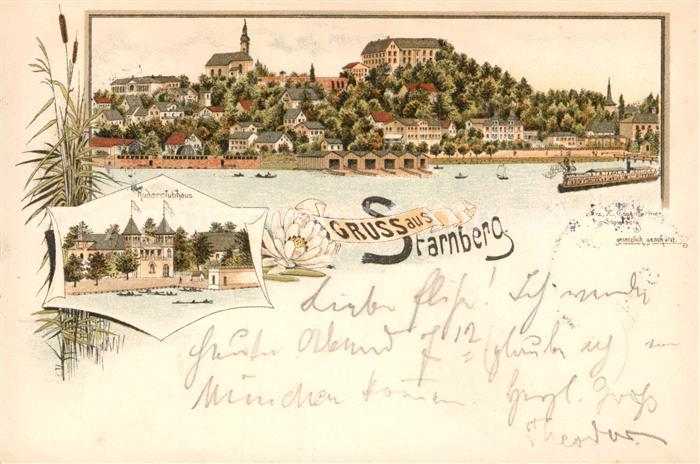 Ruderclubhaus
GRUSS aus
Starnberg.
Starnberg
gesetzlich geschützt.
Liebe ! Ich werde
heute Abend 12 (glaube ich)
München kommen. Herzl. Gruß
Theodor